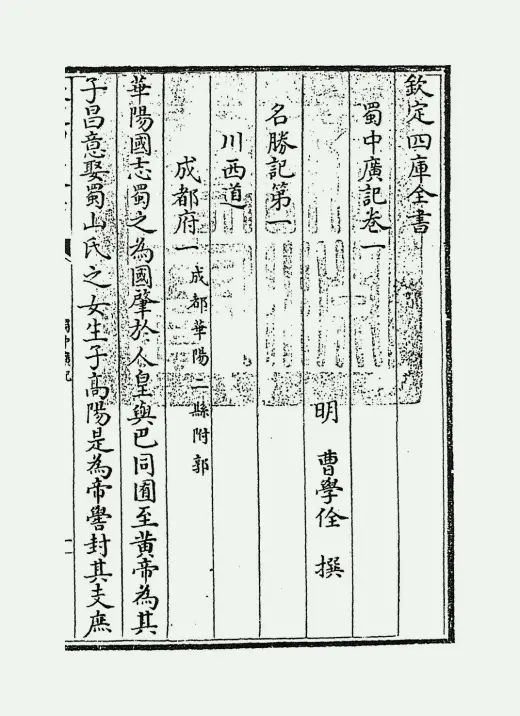 欽定四庫全書
蜀中廣記卷一
明 曹學佺 撰
名勝記第一
川西道
成都府一 成都華陽二縣附郭
華陽國志蜀之為國肇於人皇與巴同囿至黄帝為其
子昌意娶蜀山氏之女生子高陽是為帝嚳封其支庶
蜀中廣記